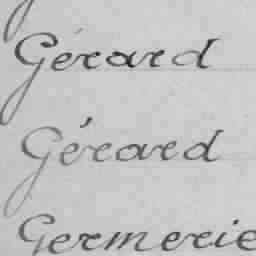 Gérard
Gérard
Germerie